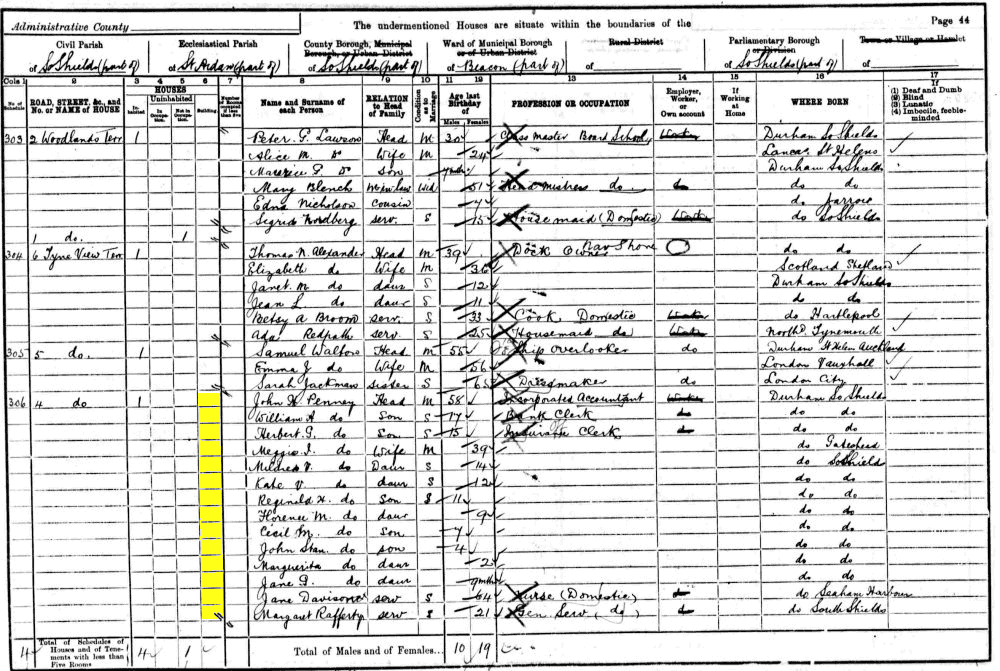 Administrative County
The undermentioned Houses are situate within the boundaries of the
Page 44
Civil Parish
of So Shields (part of)
Ecclesiastical Parish
of St Aidan (part of)
County Borough, Municipal Borough, or Urban District
of So Shields (part of)
Ward of Municipal Borough or of Urban District
of Beacon (part of)
Rural District
of
Parliamentary Borough or Division
of So Shields (part of)
Town or Village or Hamlet
of
Cols 1 2 3 4 5 6 7 8 9 10 11 12 13 14 15 16 17
No. of Schedule
ROAD, STREET, &c., and No. or NAME of HOUSE
HOUSES
Inhabited
Uninhabited
In Occupation.
Not in Occupation.
Building
Number of Rooms occupied if less than five
Name and Surname of each Person
RELATION to Head of Family
Condition as to Marriage
Age last Birthday of
Males Females
PROFESSION OR OCCUPATION
Employer, Worker, or Own account
If Working at Home
WHERE BORN
If
(1) Deaf and Dumb
(2) Blind
(3) Lunatic
(4) Imbecile, feeble-minded
303 2 Woodlands Terr 1 Peter G. Lawson Head M 30 Class Master Board School Worker Durham So Shields
Alice M. do Wife M 24 Lancas St Helens
F. do Son Durham So Shields
Mary Blench M in law Wid 51 Head mistress do. do do
Edna Nicholson Cousin 4 do Jarrow
Sigrid Nordberg serv. S 15 Housemaid (Domestic) Worker do So Shields
1 do. 1
304 6 Tyne View Terr 1 Thomas N. Alexander Head M 39 Dock Owner do do
Elizabeth do Wife M 36 Scotland Shetland
Janet M do daur S 12 Durham So Shields
Jean L. do daur S 11 do do
Betsy A Broom serv. S 33 Cook Domestic Worker do Hartlepool
Ada Redpath serv. S 25 Housemaid do Worker North'd Tynemouth
305 5 do. 1 Samuel Walton Head M 55 Ship Overlooker do Durham St Helen Auckland
Emma J do Wife M 56 London Vauxhall
Sarah Jackman Sister S 65 Dressmaker do London City
306 4 do 1 John H. Penney Head M 58 Incorporated Accountant Worker Durham So Shields
William H. do Son S 17 Bank Clerk do do
Herbert G. do Son S 15 Insurance Clerk do do
Meggie I. do Wife M 39 do Gateshead
Mildred V. do Daur S 14 do So Shield
Kate V. do daur S 12 do do
Reginald H. do Son S 11 do do
Florence M. do daur 9 do do
Cecil M. do Son 7 do do
John Stan. do son 4 do do
Marguerita do daur 2 do do
Jane G. do daur 9 mths do do
Jane Davison serv S 64 Nurse (Domestic) do Seaham Harbour
Margaret Rafferty serv S 21 Gen Serv (do) do South Shields
4 Total of Schedules of Houses and of Tenements with less than Five Rooms 4 1 Total of Males and of Females... 10 19